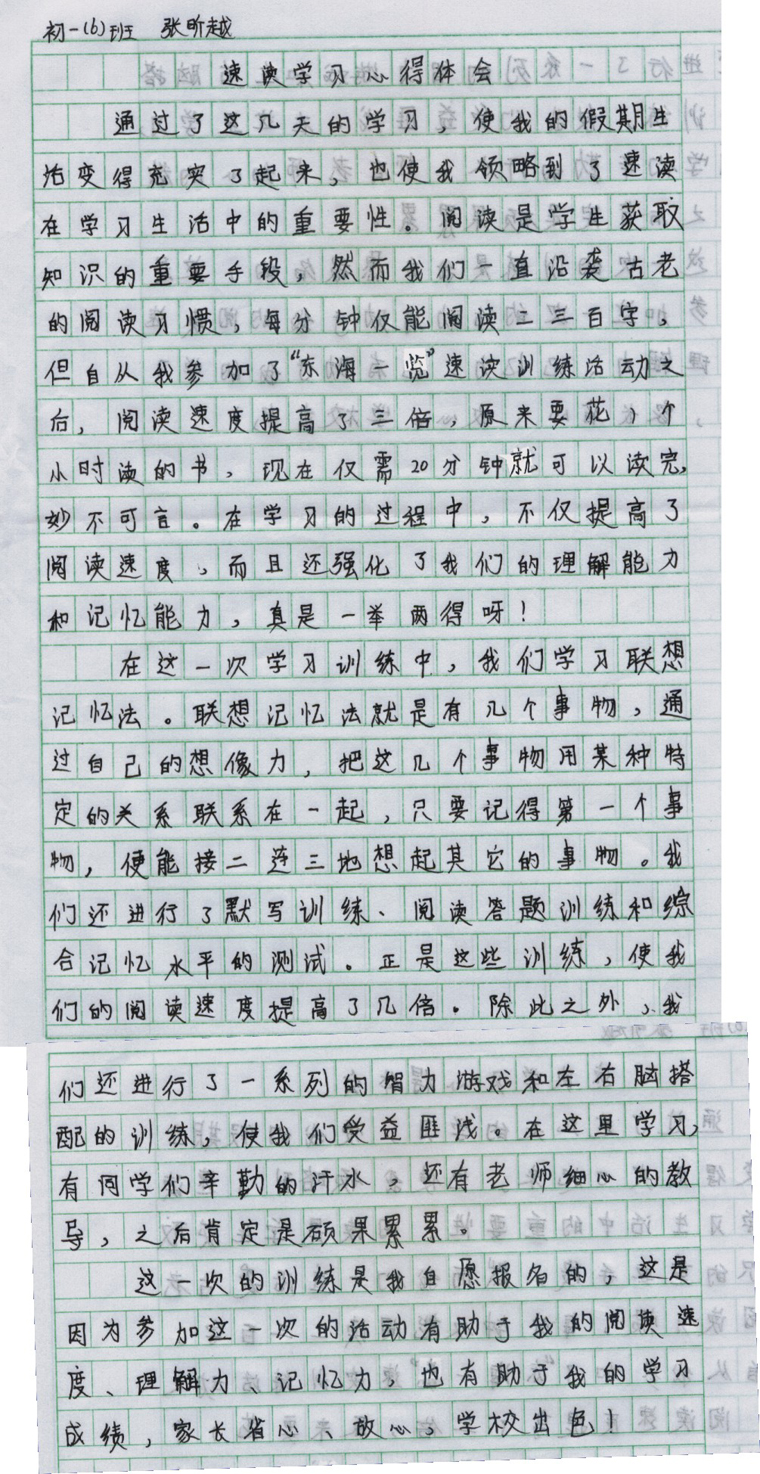 初一(6)班 张昕越
速读学习心得体会
通过了这几天的学习，使我的假期生
活变得充实了起来，也使我领略到了速读
在学习生活中的重要性。阅读是学生获取
知识的重要手段，然而我们一直沿袭古老
的阅读习惯，每分钟仅能阅读二三百字，
但自从我参加了“东海一览”速读训练活动之
后，阅读速度提高了三倍，原来要花1个
小时读的书，现在仅需20分钟就可以读完，
妙不可言。在学习的过程中，不仅提高了
阅读速度，而且还强化了我们的理解能力
和记忆能力，真是一举两得呀！
在这一次学习训练中，我们学习联想
记忆法。联想记忆法就是有几个事物，通
过自己的想像力，把这几个事物用某种特
定的关系联系在一起，只要记得第一个事
物，便能接二连三地想起其它的事物。我
们还进行了默写训练、阅读答题训练和综
合记忆水平的测试。正是这些训练，使我
们的阅读速度提高了几倍。除此之外，我
们还进行了一系列的智力游戏和左右脑搭
配的训练，使我们受益匪浅。在这里学习，
有同学们辛勤的汗水，还有老师细心的教
导，之后肯定是硕果累累。
这一次的训练是我自愿报名的，这是
因为参加这一次的活动有助于我的阅读速
度、理解力、记忆力，也有助于我的学习
成绩，家长省心、放心，学校出色！